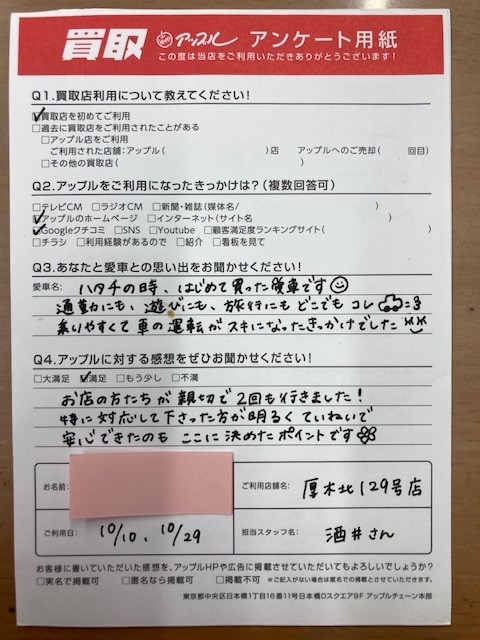 買取 アップル アンケート用紙
この度は当店をご利用いただきありがとうございます!
Q1.買取店利用について教えてください!
☑買取店を初めてご利用
□過去に買取店をご利用されたことがある
□アップル店をご利用
ご利用された店舗:アップル( )店 アップルへのご売却( 回目)
□その他の買取店( )
Q2.アップルをご利用になったきっかけは?(複数回答可)
□テレビCM □ラジオCM □新聞・雑誌(媒体名/ )
☑アップルのホームページ □インターネット(サイト名 )
☑Googleクチコミ □SNS □Youtube □顧客満足度ランキングサイト( )
□チラシ □利用経験があるので □紹介 □看板を見て
Q3.あなたと愛車との思い出をお聞かせください!
愛車名: ハタチの時、はじめて買った愛車です
通勤にも、遊びにも、旅行にもどこでもコレ
乗りやすくて車の運転がスキになったきっかけでした
Q4.アップルに対する感想をぜひお聞かせください!
□大満足 ☑満足 □もう少し □不満
お店の方たちが親切で2回も行きました!
特に対応して下さった方が明るくていねいで
安心できたのもここに決めたポイントです
お名前:
ご利用店舗名: 厚木北129号店
ご利用日: 10/10、10/29
担当スタッフ名: 酒井さん
お客様に書いていただいた感想を、アップルHPや広告に掲載させていただいてもよろしいでしょうか?
□実名で掲載可 □匿名なら掲載可 □掲載不可 ※ご記入がない場合は匿名での掲載とさせていただきます。
東京都中央区日本橋1丁目16番11号日本橋Dスクエア9F アップルチェーン本部